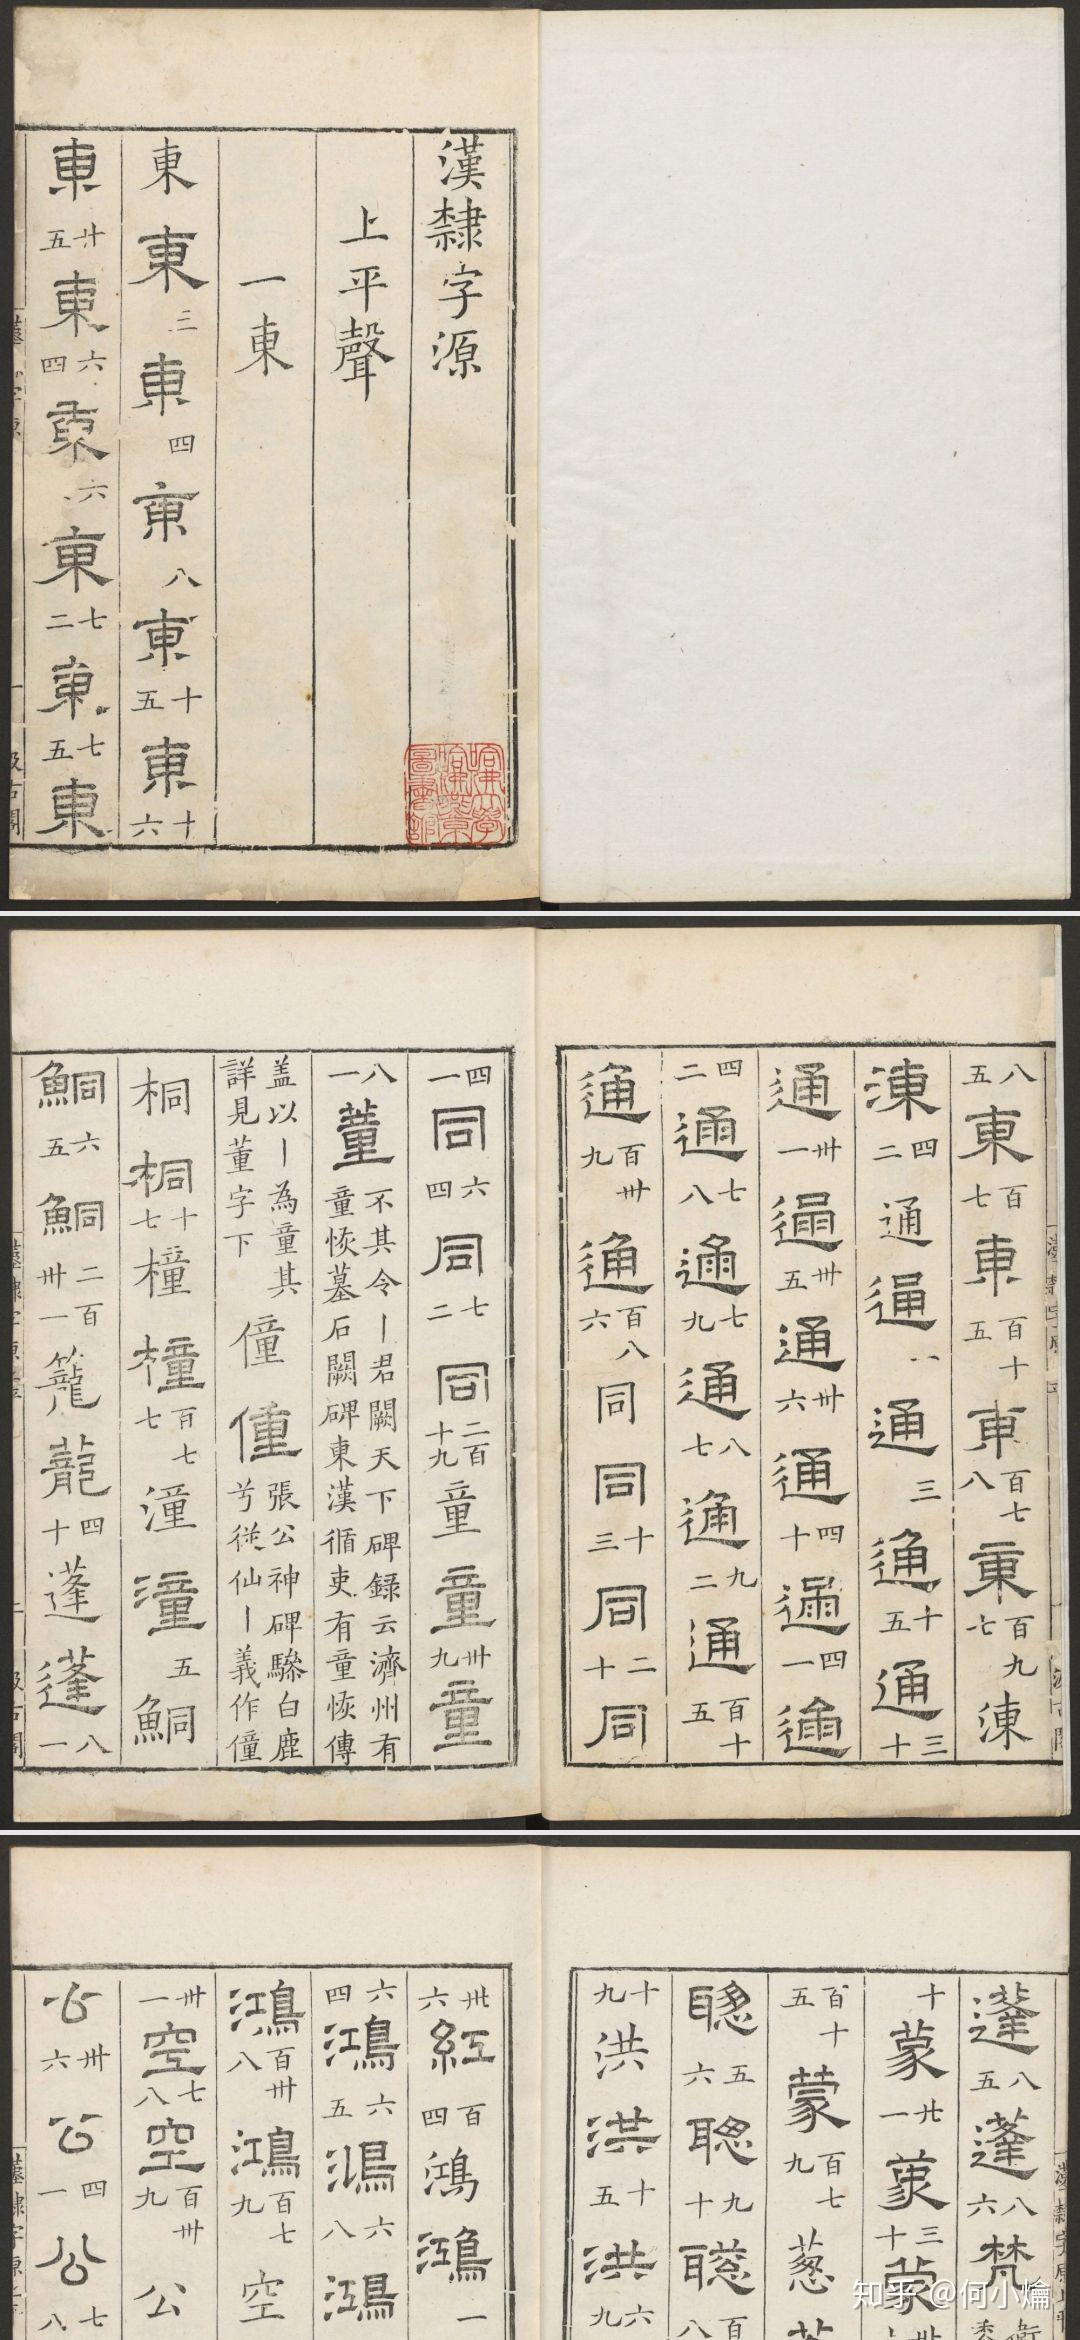 漢隸字源
上平聲
一東
東東三東四東八東十五東十六
東廿五東六四東六東七二東七五東
八五東百七東百十五東百七八東百九七涷
涷四二通通一通三通十五通三十
通卅一通卅五通卅六通四十通四一通
四二通七八通七九通八七通九二通百十五
通百卅九通百八六同同十三同二十同
四一同六四同七二同二百十九童童卅九童
八一董不其令丨君闕天下碑録云濟州有童恢墓石闕碑東漢循吏有童恢傳
盖以丨為童其詳見董字下僮僮張公神碑驂白鹿兮從仙丨義作僮
桐桐十七橦橦百七七潼潼五鮦
鮦六五鮦二百卅一籠蘢四十蓬蓬八一
蓬八五蓬八六梵
十蒙廿一蒙三十蒙
百十五蒙百七九蔥
聰五六聰九十聰
十九洪洪十五洪六九
卅六紅百四鴻鴻一
六四鴻六五鴻六八鴻
鴻百卅八鴻百七九空
卅一空七八空百卅九公
公卅六公四一公七八
知乎 @何小爚